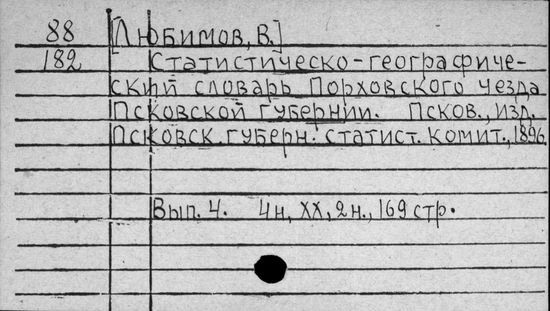 88 [Любимов, В.]
182 Статистическо-географиче-
ский словарь Порховского уезда
Псковской губернии. Псков., изд.
Псковск. губерн. статист. комит., 1896.
Вып. 4. 4н, XX, 2н., 169 стр.